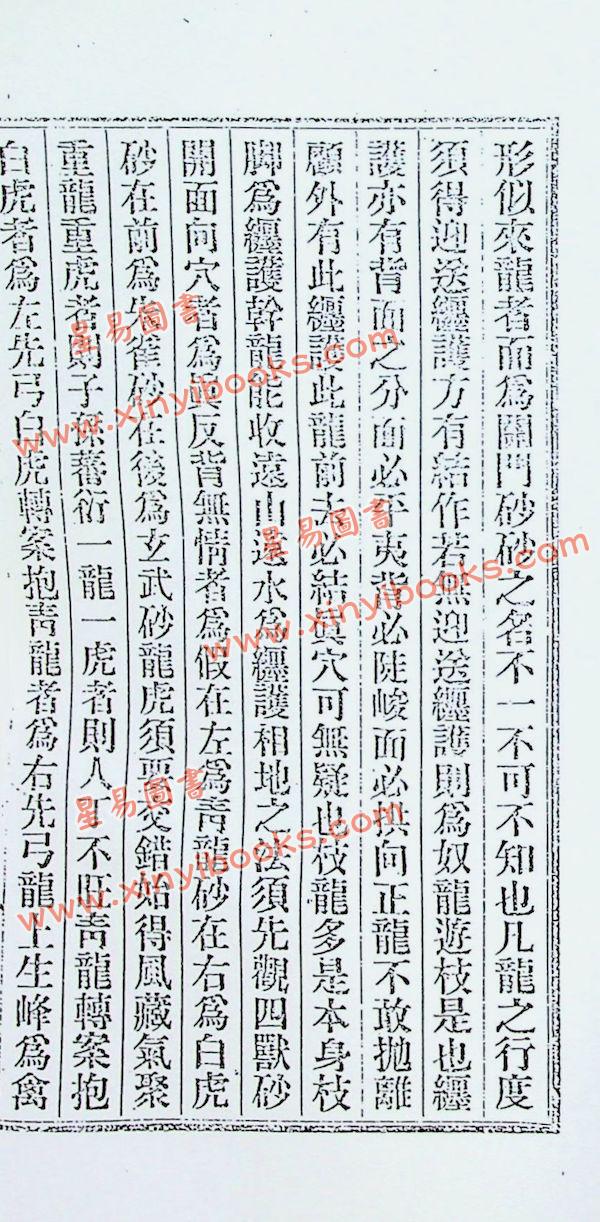 形似來龍者面爲關門砂砂之名不一不可不知也凡龍之行度
須得迎送纏護方有結作若無迎送纏護則爲奴龍遊枝是也纏
護亦有背面之分面必平夷背必陡峻面必拱向正龍不敢拋離
顧外有此纏護此龍前去必結眞穴可無疑也枝龍多是本身枝
脚爲纏護幹龍能收遠山遠水爲纏護相地之法須先觀四獸砂
開面向穴者爲眞反背無情者爲假在左爲靑龍砂在右爲白虎
砂在前爲朱雀砂在後爲玄武砂龍虎須要交錯始得風藏氣聚
重龍重虎者則子孫蕃衍一龍一虎者則人丁不旺靑龍轉案抱
白虎者爲左先弓白虎轉案抱靑龍者爲右先弓龍上生峰爲禽
星易圖書
www.xinyibooks.com
星易圖書
www.xinyibooks.com
星易圖書
www.xinyibooks.com